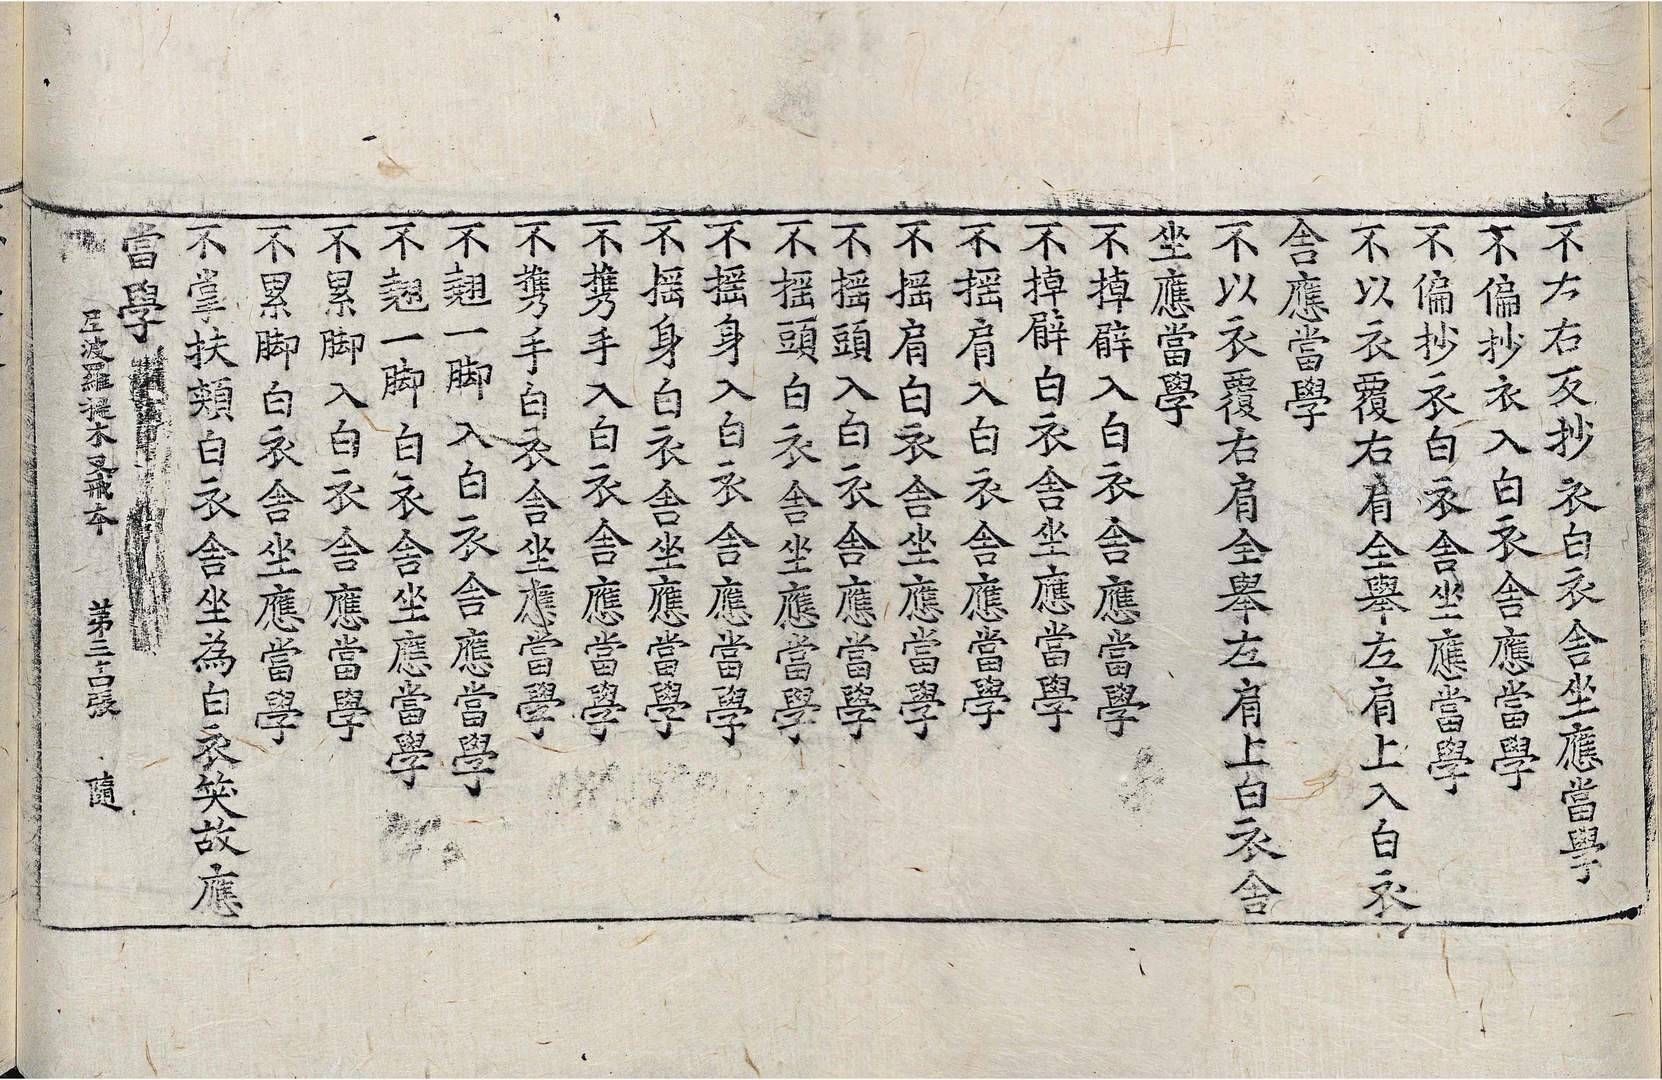 不左右反抄衣白衣舍坐應當學
不偏抄衣入白衣舍應當學
不偏抄衣白衣舍坐應當學
不以衣覆右肩全舉左肩上入白衣
舍應當學
不以衣覆右肩全舉左肩上白衣舍
坐應當學
不掉臂入白衣舍應當學
不掉臂白衣舍坐應當學
不搖肩入白衣舍應當學
不搖肩白衣舍坐應當學
不搖頭入白衣舍應當學
不搖頭白衣舍坐應當學
不搖身入白衣舍應當學
不搖身白衣舍坐應當學
不攜手入白衣舍應當學
不攜手白衣舍坐應當學
不翹一脚入白衣舍應當學
不翹一脚白衣舍坐應當學
不累脚入白衣舍應當學
不累脚白衣舍坐應當學
不掌扶頰白衣舍坐為白衣笑故應
當學
波羅提木叉戒本 第張 隨